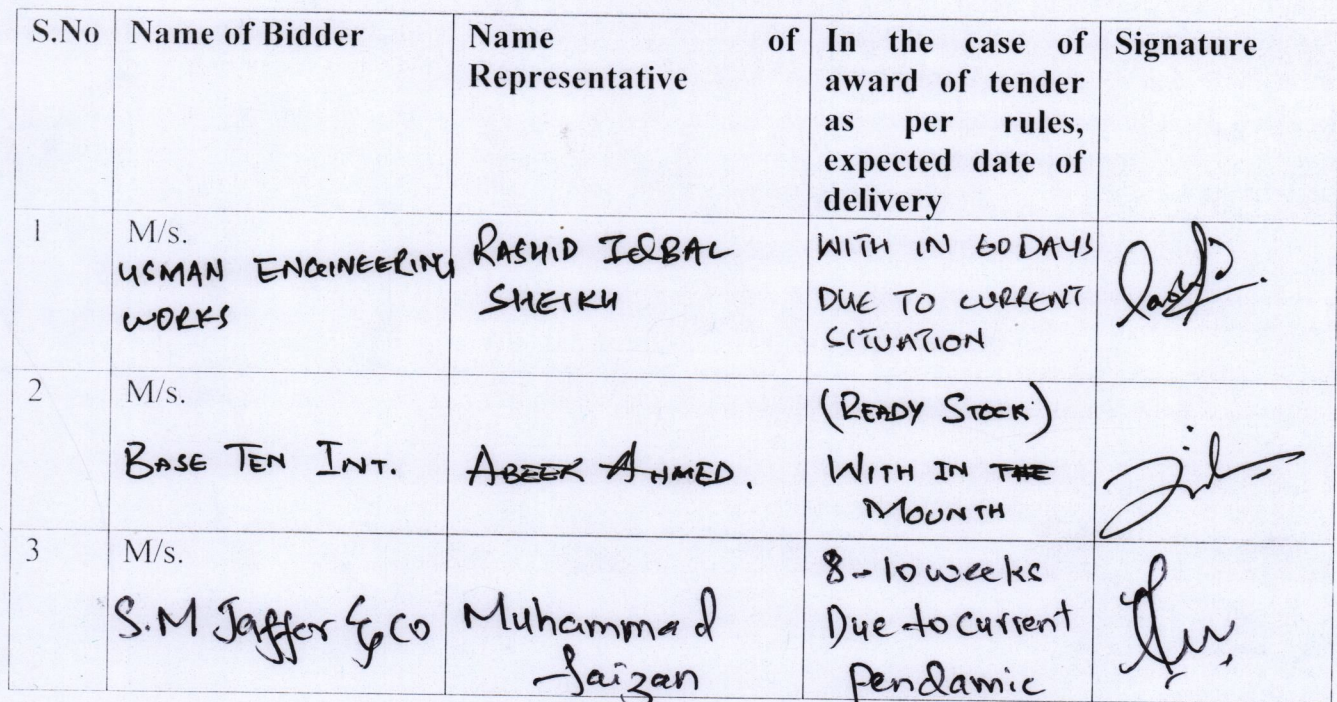 S.No Name of Bidder Name of Representative In the case of award of tender as per rules, expected date of delivery Signature
1 M/s.
USMAN ENGINEERING
WORKS
RASHID IQBAL
SHEIKH
WITH IN 60 DAYS
DUE TO CURRENT
SITUATION
2 M/s.
BASE TEN INT.
ABEEK AHMED.
(READY STOCK)
WITH IN THE
MOUNTH
3 M/s.
S.M Jaffer & CO
Muhammad
faizan
8-10 weeks
Due to current
pendamic